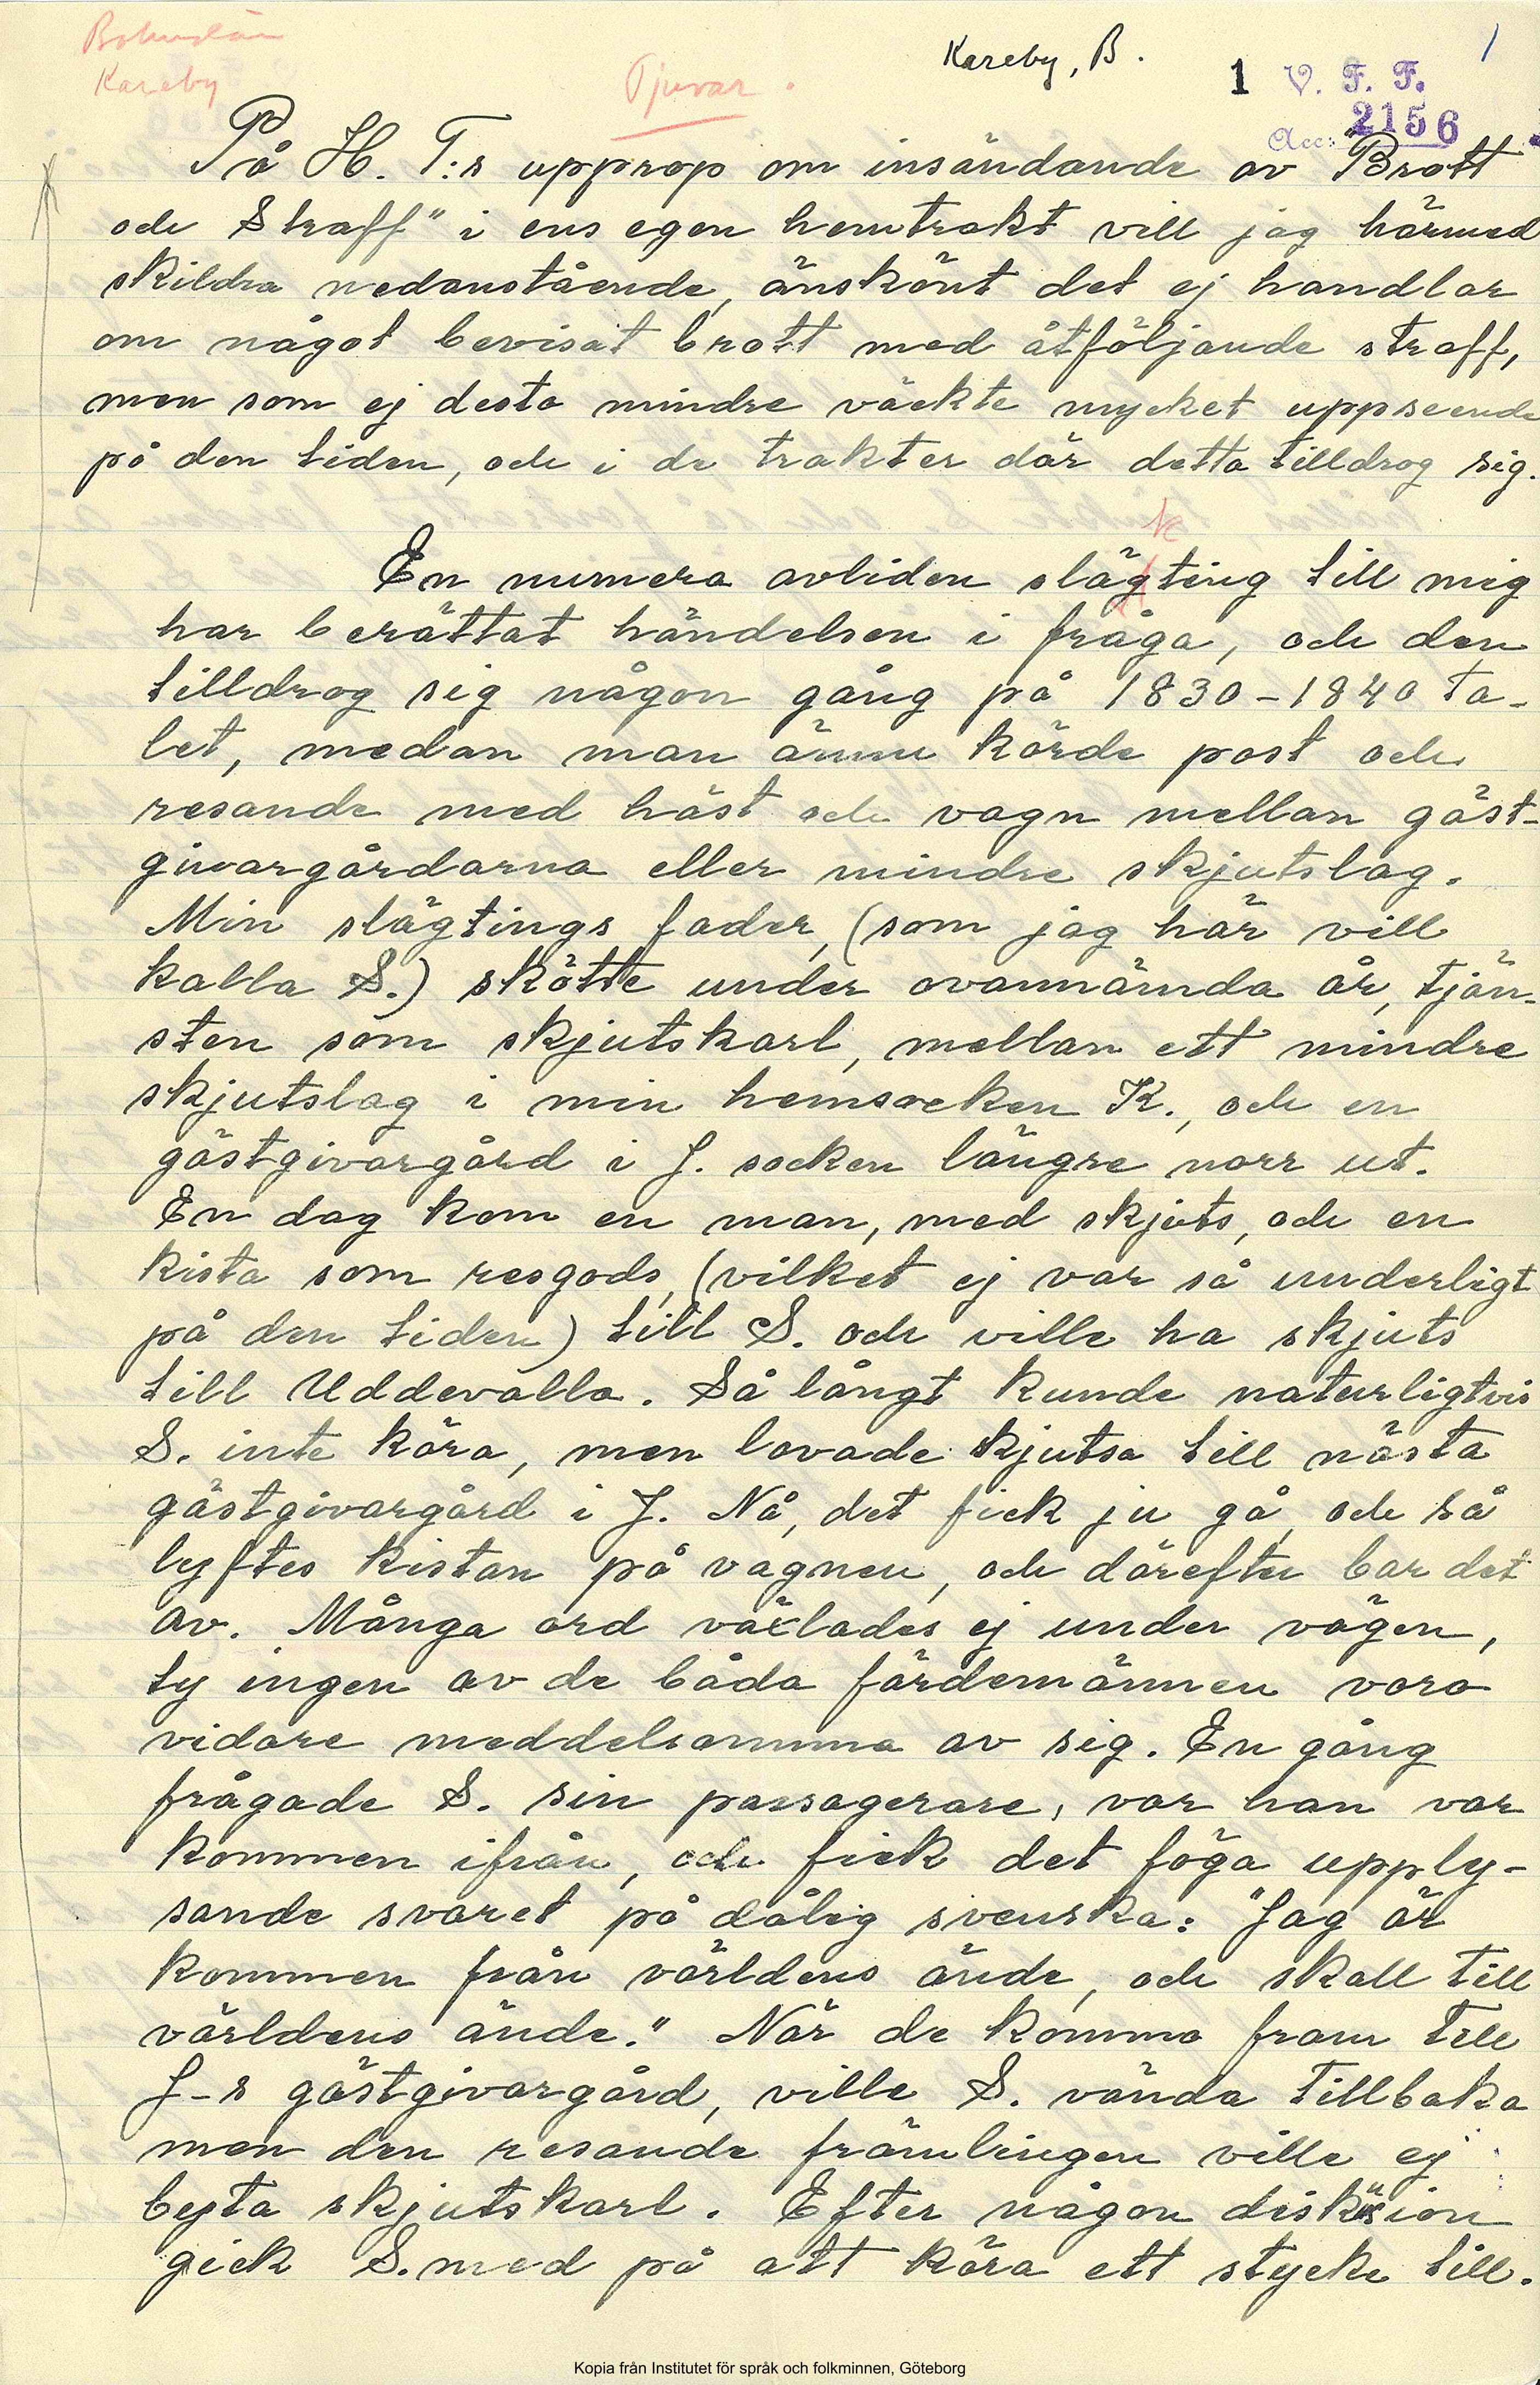 Bohuslän
Kareby
Tjuvar.
Kareby, B.
1
1 V. F. F.
Acc: 2156
På H. T:s upprop om insändande av "Brott
och Straff" i ens egen hemtrakt vill jag härmed
skildra nedanstående, änskönt det ej handlar
om något bevisat brott med åtföljande straff,
men som ej desto mindre väckte mycket uppseende
på den tiden, och i de trakter där detta tilldrog sig.
k
En numera avliden slägting till mig
har berättat händelsen i fråga, och den
tilldrog sig någon gång på 1830-1840 ta-
let, medan man ännu körde post och
resande med häst och vagn mellan gäst-
givargårdarna eller mindre skjutslag.
Min slägtings fader, (som jag här vill
kalla S.) skötte under ovannämda år, tjän-
sten som skjutskarl, mellan ett mindre
skjutslag i min hemsocken K., och en
gästgivargård i J. socken längre norr ut.
En dag kom en man, med skjuts, och en
kista som resgods, (vilket ej var så underligt
på den tiden) till S. och ville ha skjuts
till Uddevalla. Så långt kunde naturligtvis
S. inte köra, men lovade skjutsa till nästa
gästgivargård i J. Nå, det fick ju gå, och så
lyftes kistan på vagnen, och därefter bar det
av. Många ord växlades ej under vägen,
ty ingen av de båda färdemännen voro
vidare meddelsamma av sig. En gång
frågade S. sin passagerare, var han var
kommen ifrån, och fick det föga upply-
sande svaret på dålig svenska: "Jag är
kommen från världens ände, och skall till
världens ände." När de kommo fram till
J-s gästgivargård, ville S. vända tillbaka
men den resande främlingen ville ej
byta skjutskarl. Efter någon diskusion
gick S. med på att köra ett stycke till.
Kopia från Institutet för språk och folkminnen, Göteborg